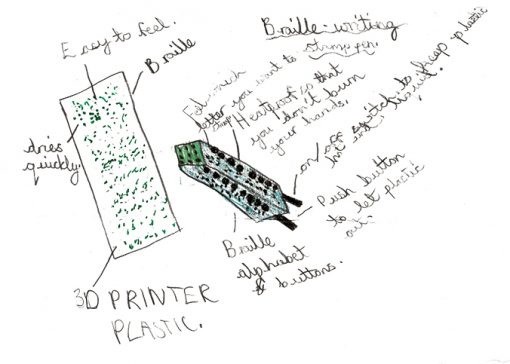 Easy to feel.
Braille
dries
quickly.
3D PRINTER
PLASTIC.
Braille-writing
stamp pen.
Feel which
letter you want to
stamp
Heatproof so that
you don't burn
your hands.
on/off switch to keep plastic
liquid.
Push button
to let plastic
out.
Braille
alphabet
& buttons.